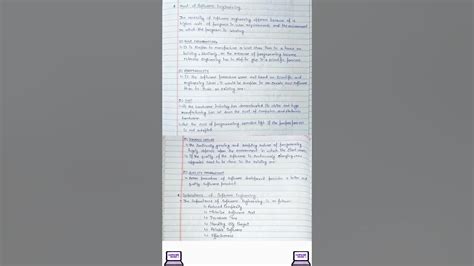 Need of Software Engineering
The necessity of software engineering appears because of a
higher rate of progress in user requirements and the environment
on which the program is working
1) Huge Programming
It is simpler to manufacture a wall than to a house or
building, similarly, as the measure of programming become
extensive engineering has to step to give it a scientific process
2) Adaptability
If the software procedure were not based on scientific and
engineering ideas, it would be simpler to re-create new software
than to scale an existing one.
3) Cost
As the hardware industry has demonstrated its skills and huge
manufacturing has let down the cost of computer and electronic
hardware.
But the cost of programming remains high if the proper process
is not adapted.
4) Dynamic Nature
The continually growing and adapting nature of programming
hugely depends upon the environment in which the client works
If the quality of the software is continually changing, new
upgrades need to be done in the existing one.
5) Quality Management
Better procedure of software development provides a better and
quality software product.
Importance of Software Engineering
The Importance of Software Engineering is as follows:
Reduces Complexity
Minimize Software Cost
Decrease Time
Handling Big Project
Reliable Software
Effectiveness